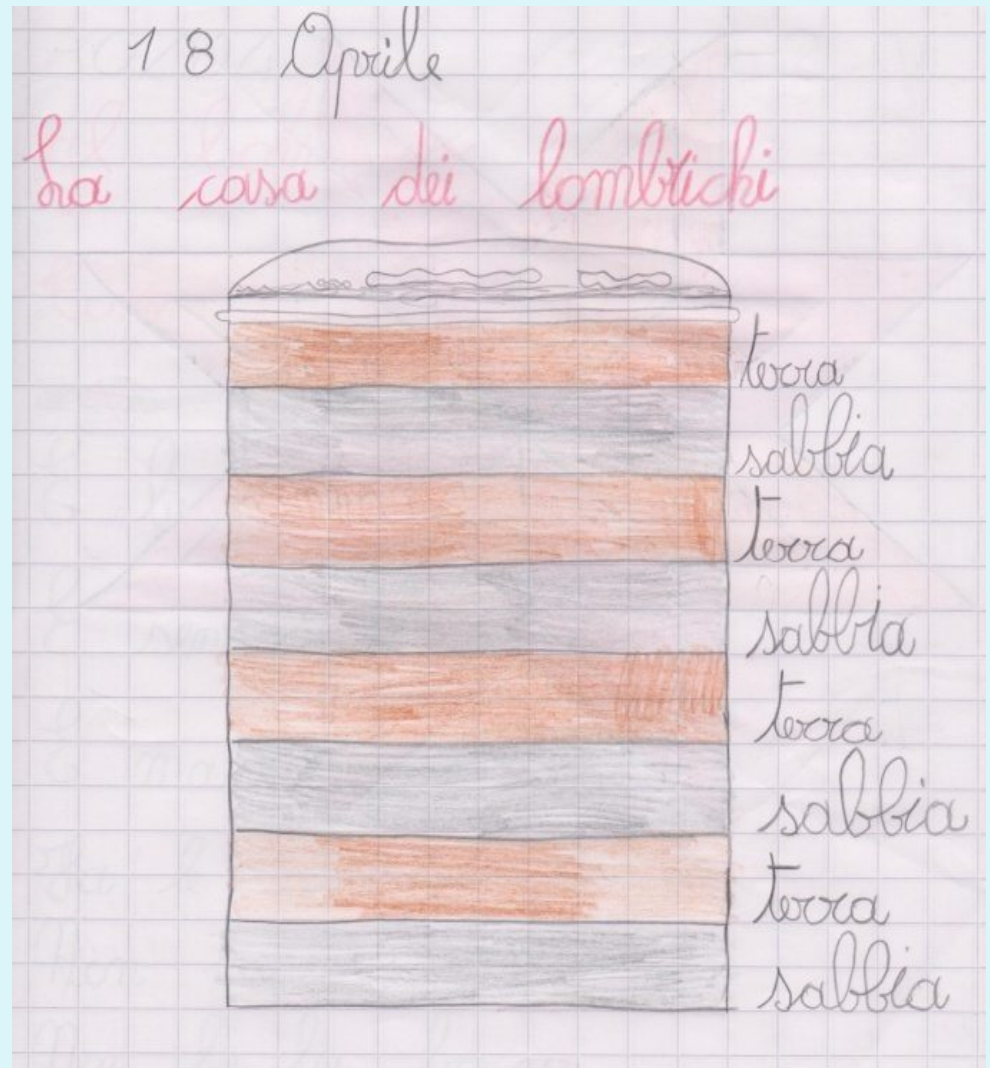 18 Aprile
La casa dei lombrichi
terra
sabbia
terra
sabbia
terra
sabbia
terra
sabbia